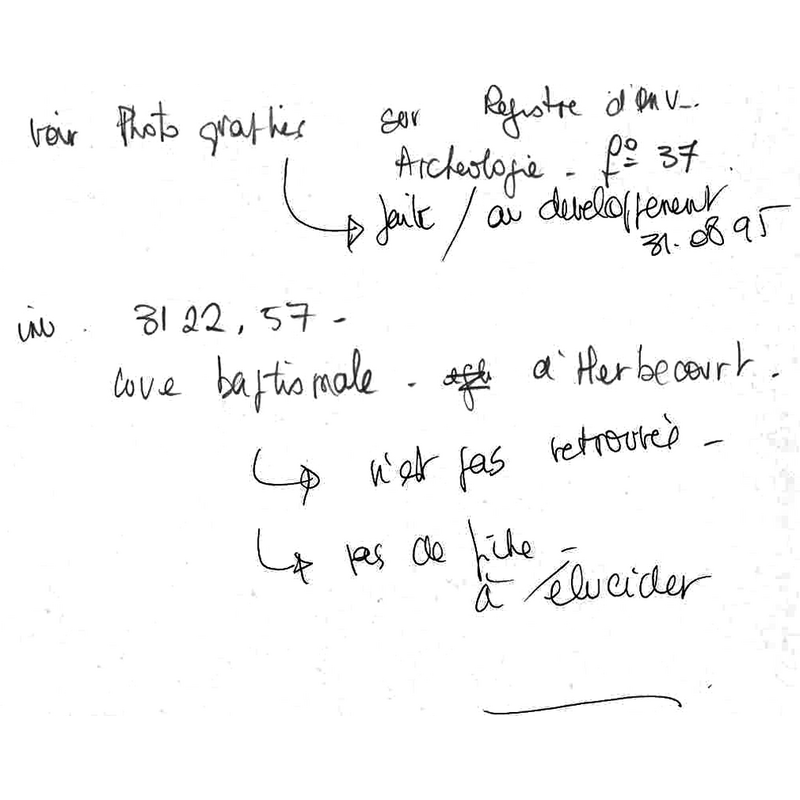 voir Photographies sur Registre d'inv.
Archeologie - f° 37.
faite / au developpement
31.08 95
inv. 3122.57 -
cuve baptismale - d'Herbecourt.
n'est pas retrouvée -
pas de fiche -
à élucider